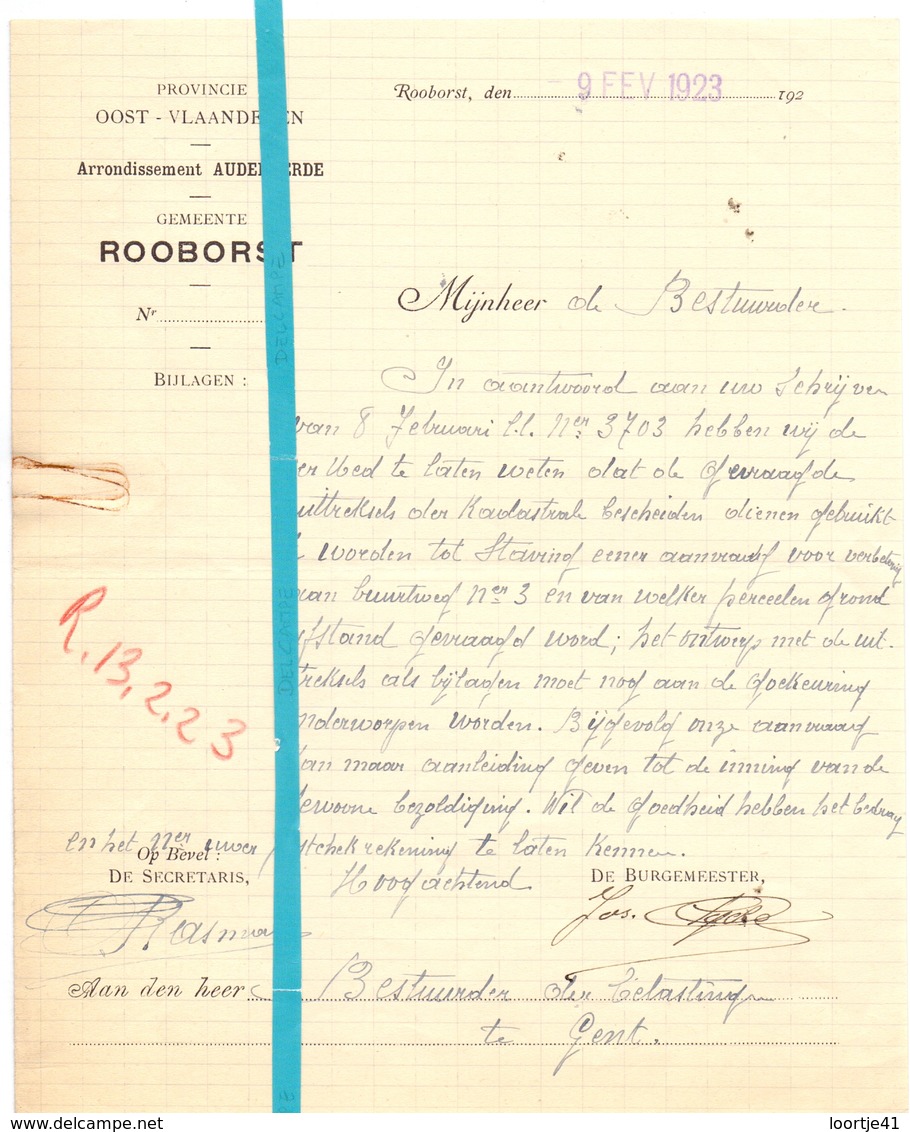 PROVINCIE
OOST - VLAANDE EN
Arrondissement AUDE ERDE
GEMEENTE
ROOBORST
Nr
BIJLAGEN :
Rooborst, den - 9 FEV 1923 192
Mijnheer de Bestuurder.
In aantwoord aan uw schrijven
van 8 Februari l.l. Ner 3703 hebben wij de
te laten weten dat de gevraagde
uittreksels der Kadastrale bescheiden dienen gebruikt
worden tot staving eener aanvraag voor verbetering
van buurtweg Ner 3 en van welker perceelen grond
afstand gevraagd word; het ontwerp met de uit-
treksels als bijlagen moet nog aan de goekeuring
onderworpen worden. Bijgevolg onze aanvraag
kan maar aanleiding geven tot de inning van de
gewoone bezoldiging. Wil de goedheid hebben het bedrag
en het Ner uwer postchekrekening te laten kennen.
Hoogachtend
Op Bevel :
DE SECRETARIS,
DE BURGEMEESTER,
Jos.
Aan den heer Bestuurder der belasting
te Gent.
R. 13.2.23
DELCAMPE
DELCAMPE
DELCAMPE
© delcampe.net
loortje41